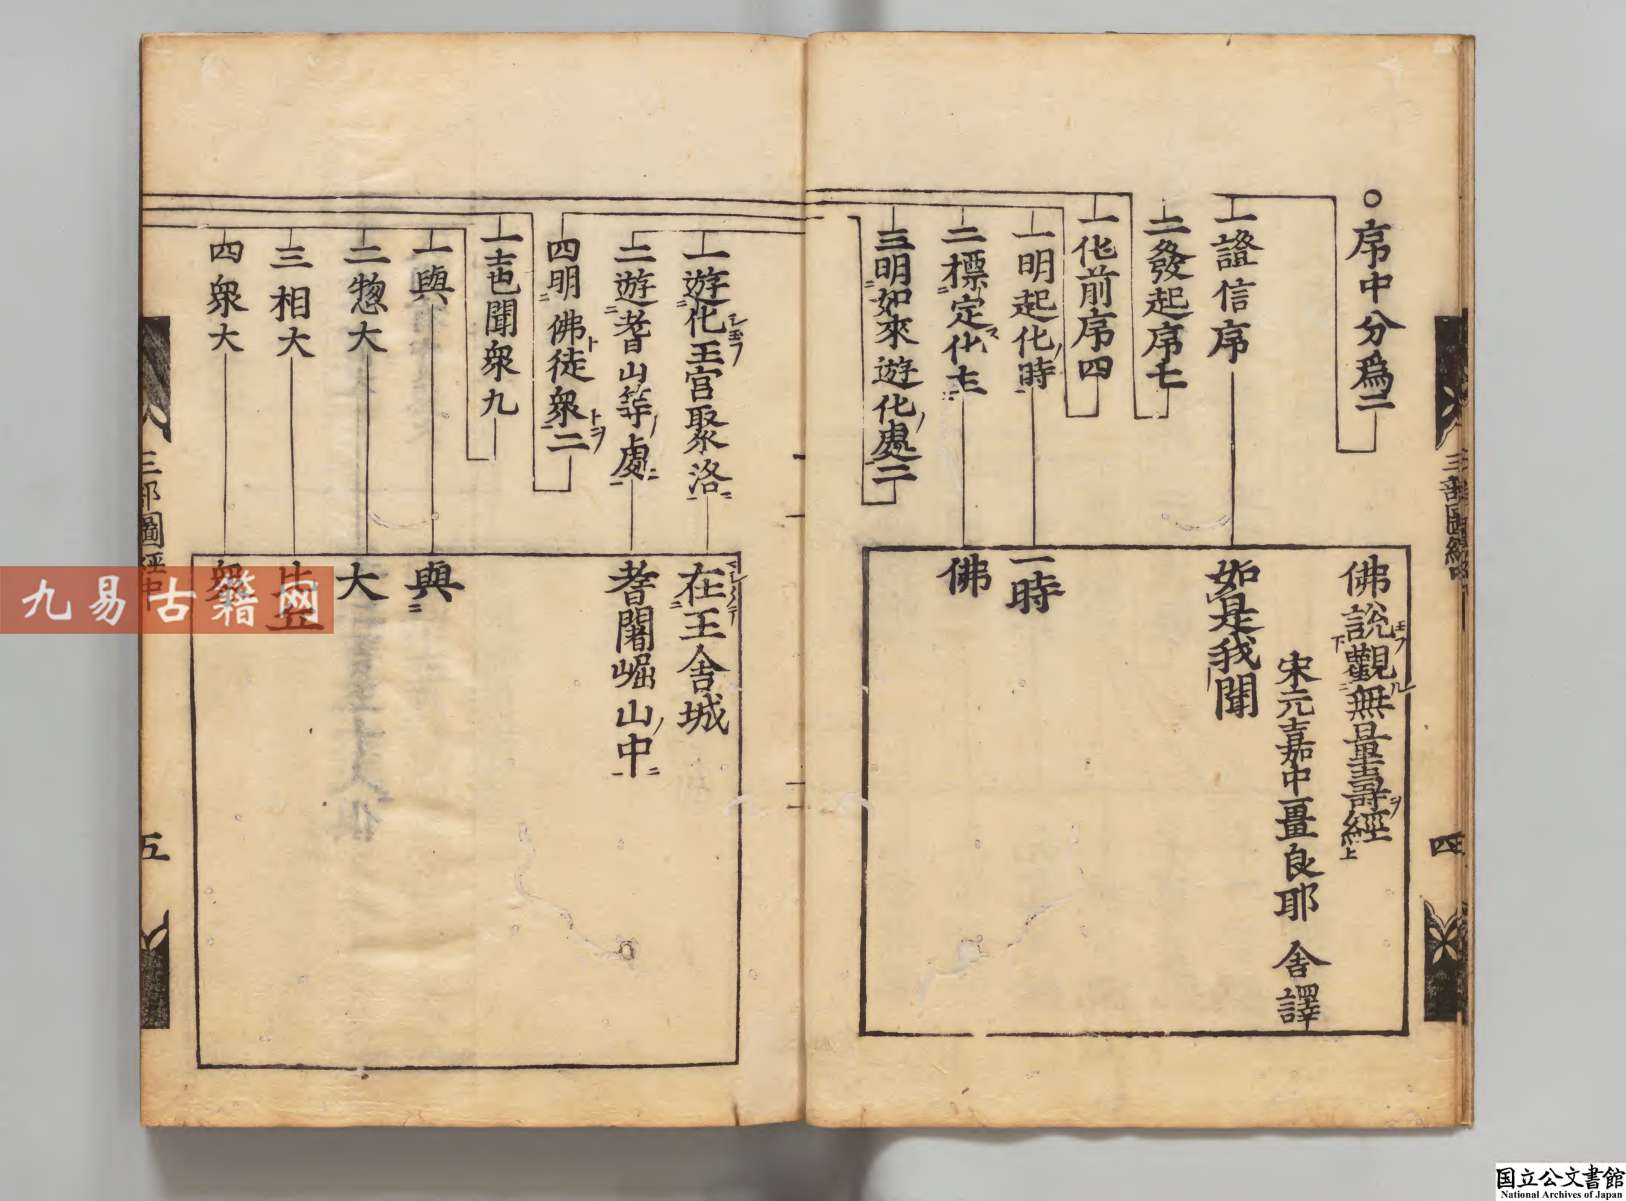 ○序中分爲二
一證信序
二發起序七
一化前序四
一明起化時
二標定化主
三明如來遊化處二
佛說觀無量壽經
宋元嘉中畺良耶舍譯
如是我聞
一時
佛
四
一遊化王宮聚洛
二遊耆山等處
四明佛徒衆二
一聲聞衆九
一與
二惣大
三相大
四衆大
在王舍城
耆闍崛山中
與
大
比丘
衆
三部圖經中
五
九易古籍网
国立公文書館
National Archives of Japan